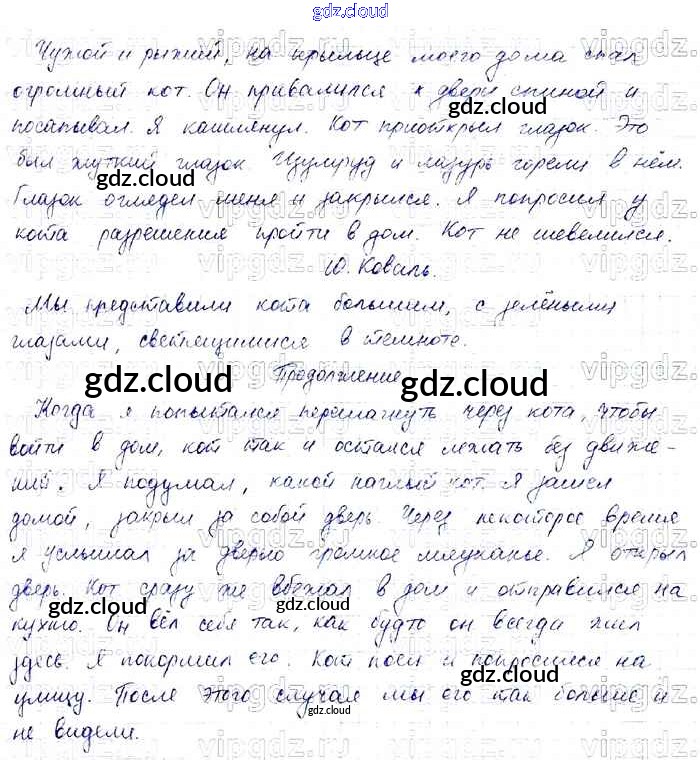 gdz.cloud
Чужой и рыжий, на крыльце моего дома спал
огромный кот. Он привалился к двери спиной и
посапывал. Я кашлянул. Кот приоткрыл глазок. Это
был жуткий глазок. Изумруд и лазурь горели в нём.
Глазок оглядел меня и закрылся. Я попросил у
кота разрешения пройти в дом. Кот не шевелился.
Ю. Коваль.
Мы представили кота большим, с зелёными
глазами, светящимися в темноте.
Продолжение
Когда я попытался перешагнуть через кота, чтобы
войти в дом, кот так и остался лежать без движе-
ний. Я подумал, какой наглый кот. Я зашел
домой, закрыл за собой дверь. Через некоторое время
я услышал за дверью громкое мяуканье. Я открыл
дверь. Кот сразу же вбежал в дом и отправился на
кухню. Он вёл себя так, как будто он всегда жил
здесь. Я покормил его. Кот поел и попросился на
улицу. После этого случая мы его так больше и
не видели.